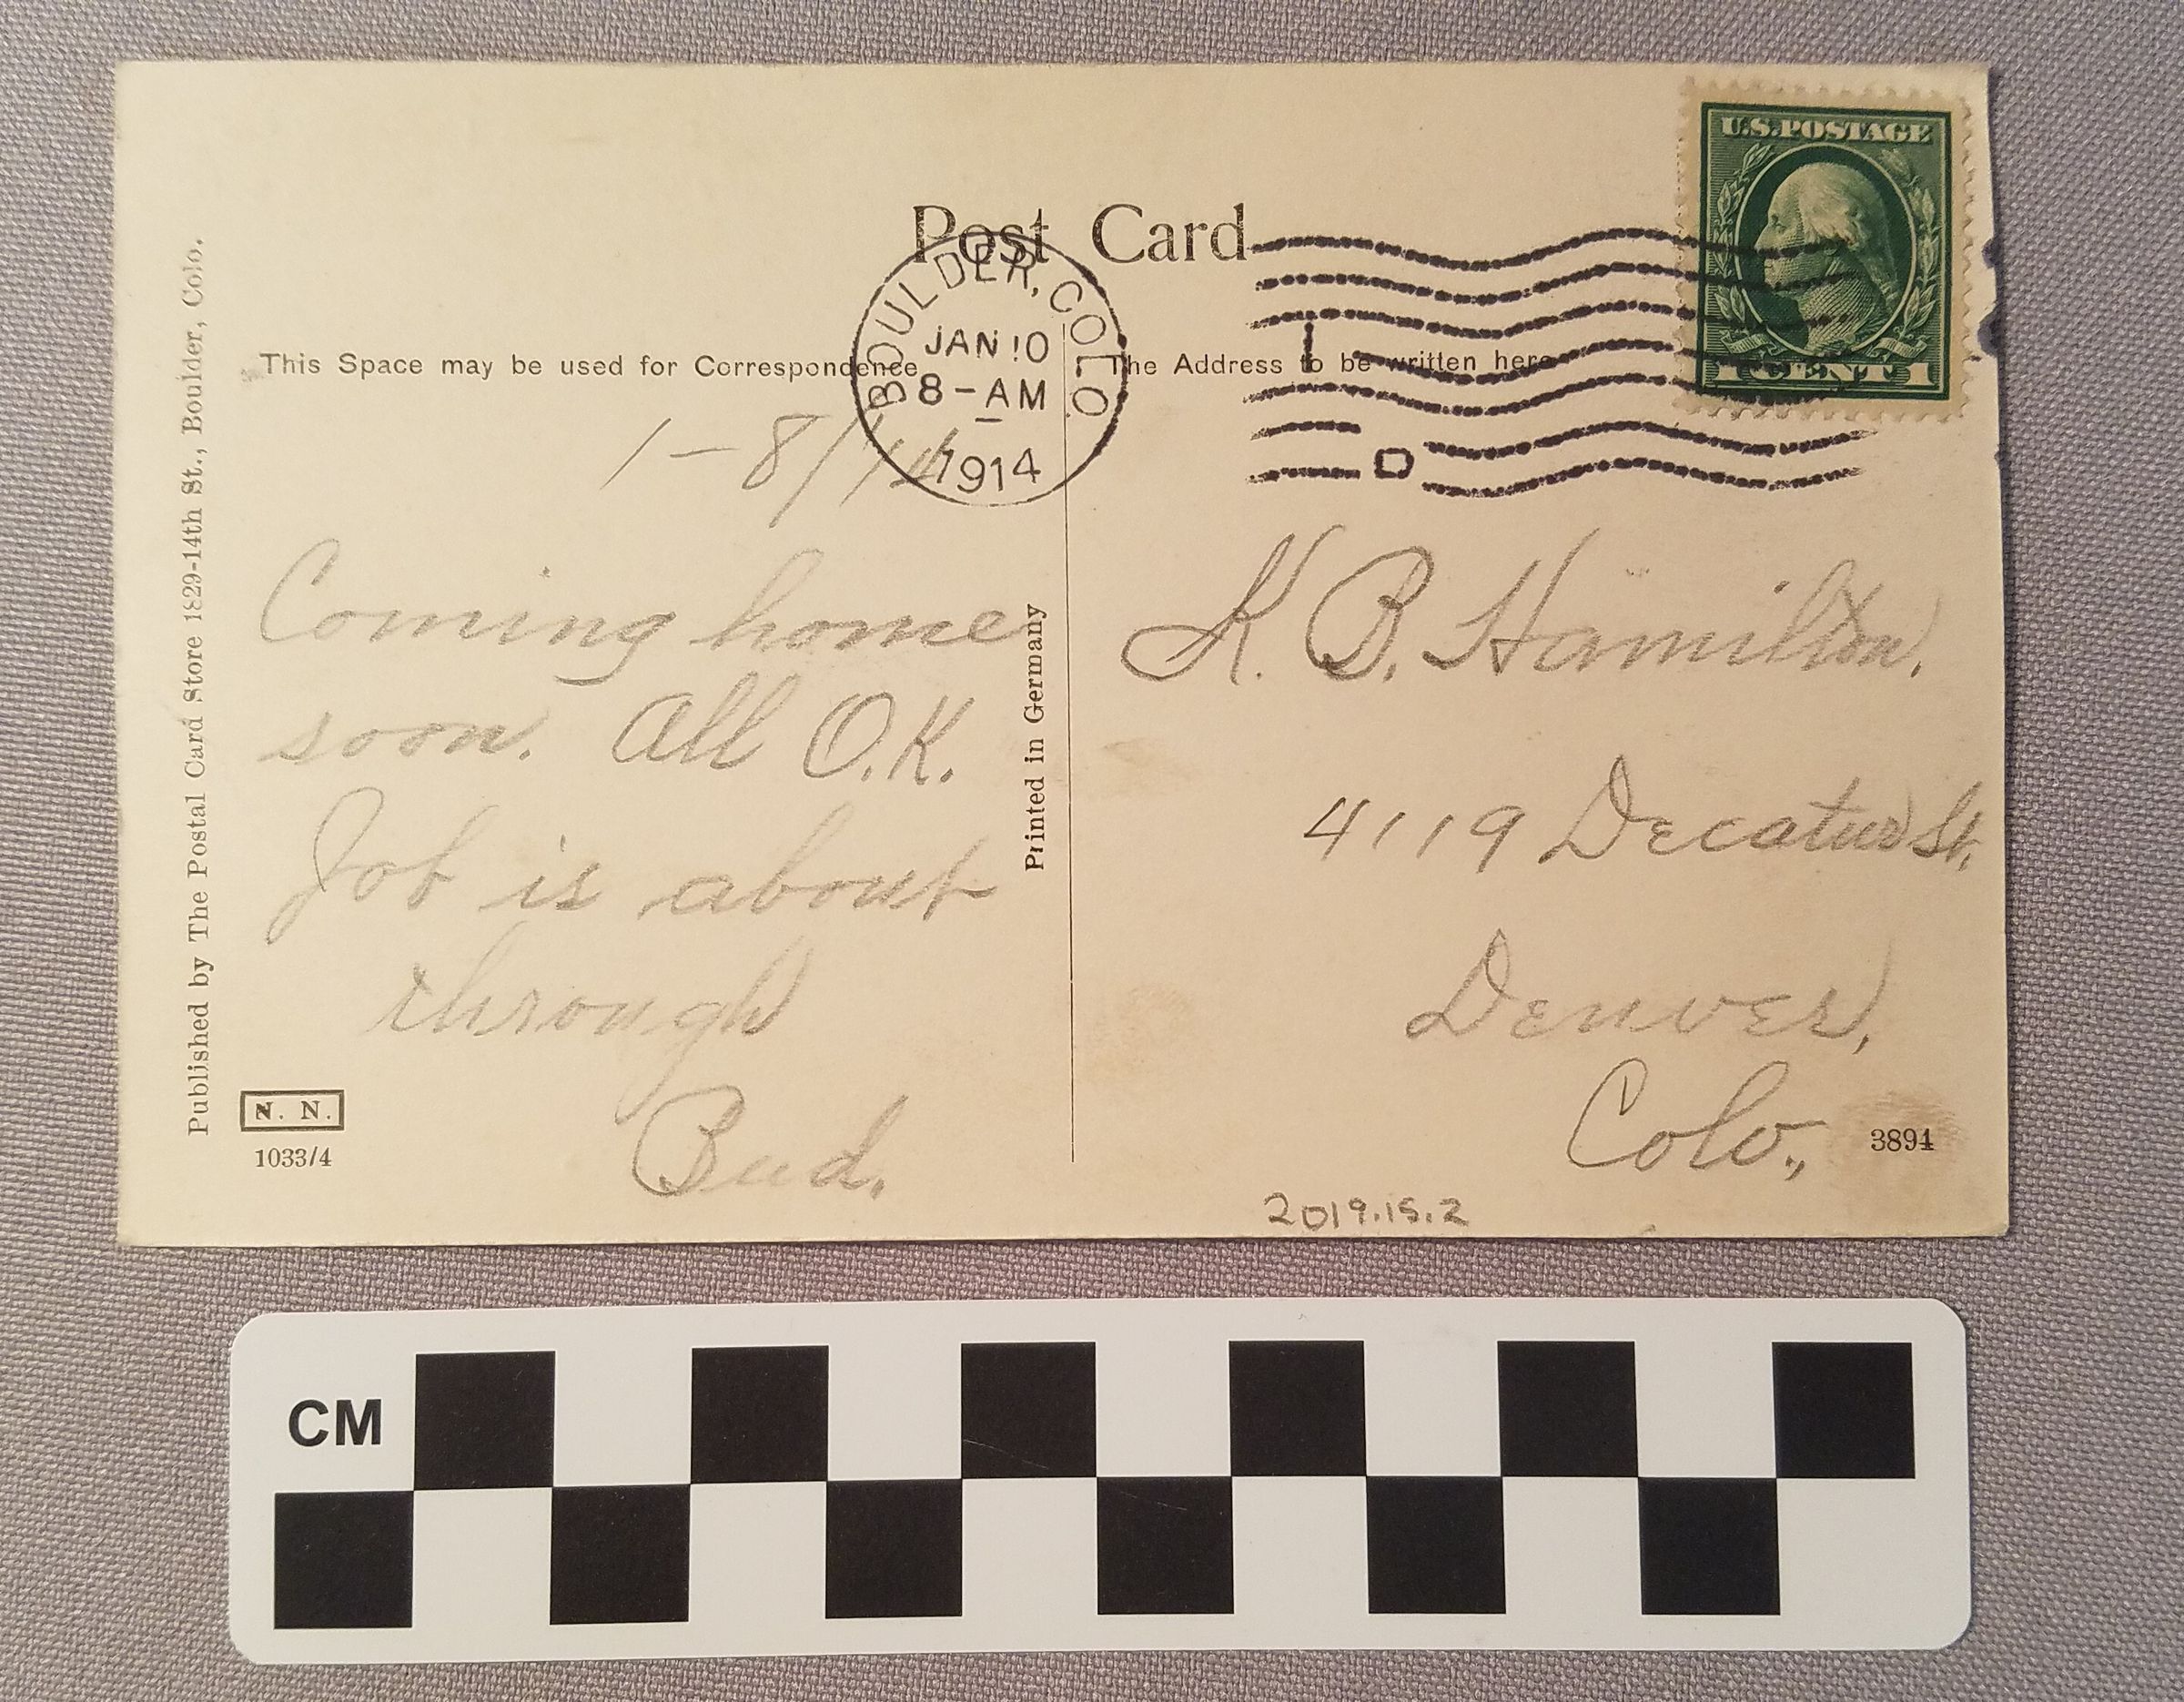 U.S. POSTAGE
1 CENT 1
Post Card
BOULDER, COLO.
JAN 10
8-AM
1914
This Space may be used for Correspondence
The Address to be written here
1-8/14
Coming home
soon. All O.K.
Job is about
through
Bud.
Printed in Germany
K. B. Hamilton,
4119 Decatur St.
Denver,
Colo.,
3894
2019.15.2
Published by The Postal Card Store 1829-14th St., Boulder, Colo.
N. N.
1033/4
CM